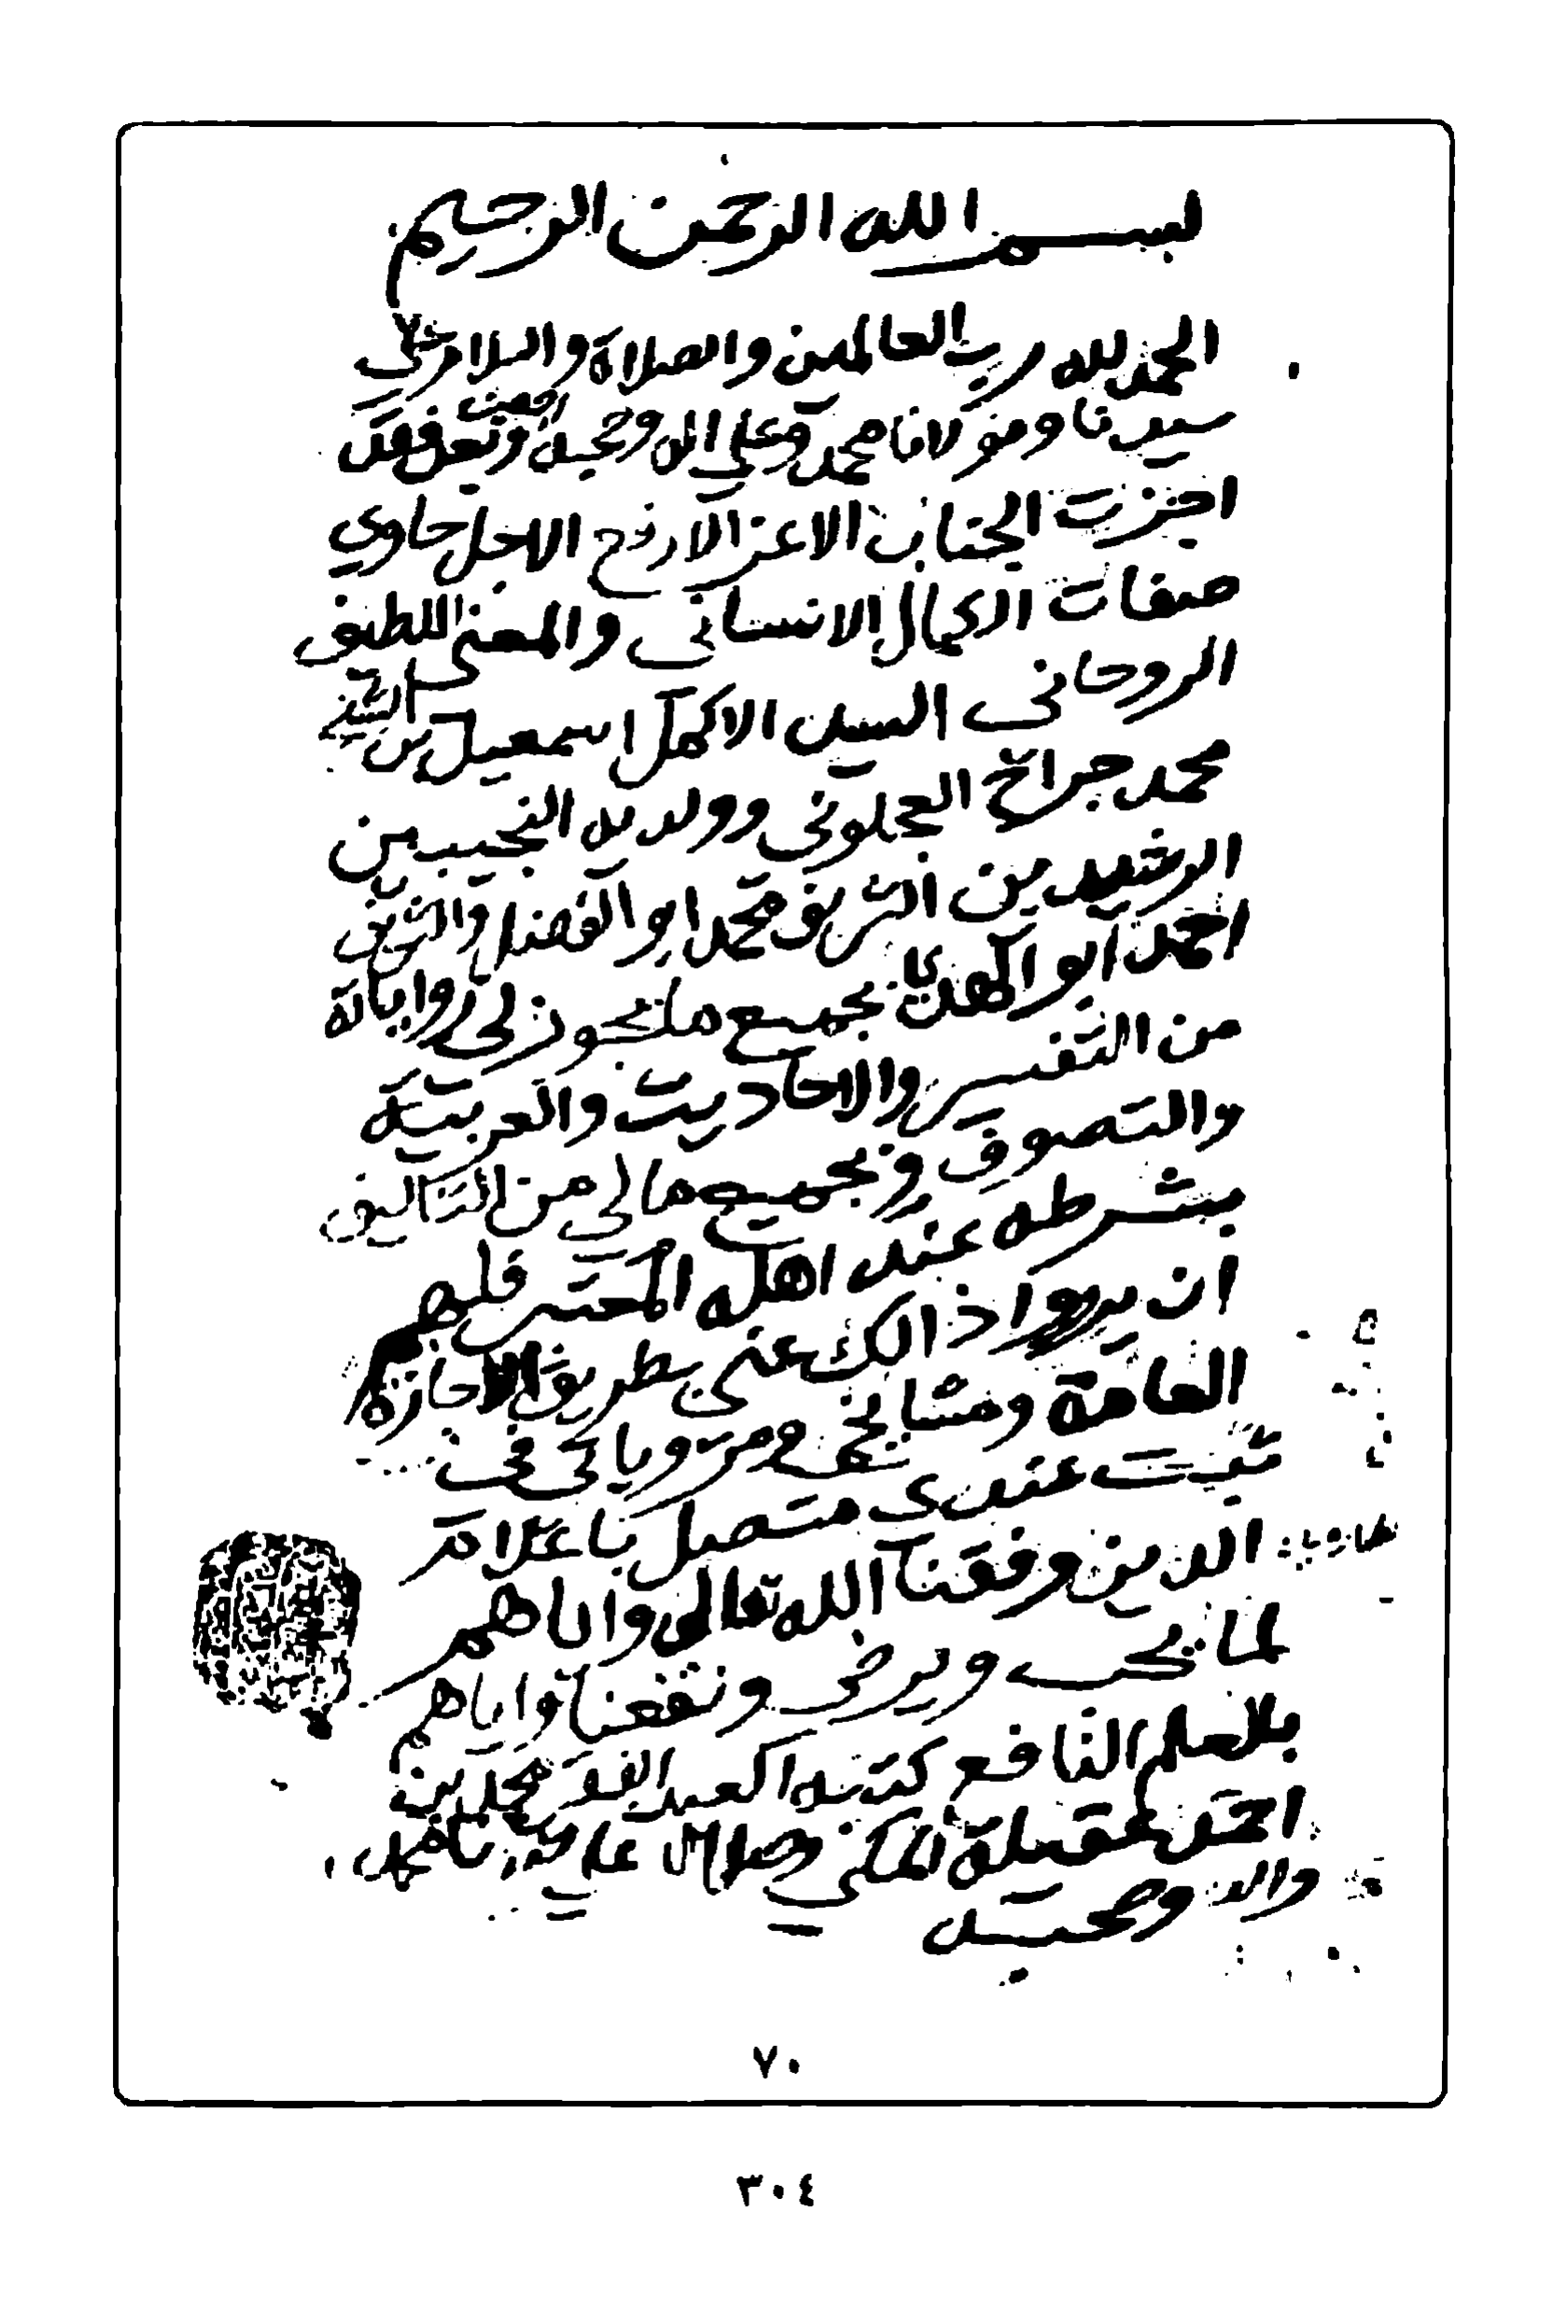 بسم الله الرحمن الرحيم
الحمد لله رب العالمين والصلاة والسلام على
سيدنا ومولانا محمد وعلى اله وصحبه اجمعين وبعد فقد
اجزت الجناب الاعز الارفع الاجل حاوي
صفات الكمال الانساني والمعنى اللطيف
الروحاني السيد الاكمل اسمعيل بن الشيخ
محمد جراح العجلوني وولديه النجيبين
الرشيدين الشريف محمد ابو الفضل والشريف
احمد ابو الهدى بجميع ما يجوز لي رواياته
من التفسير والاحاديث والعربية
والتصوف وبجميع مالي من التاليف
بشرطه عند اهله المعتبر فلهم
ان يرووا ذالك عني بطريق الاجازة
العامة ومشايخي ومروياتي في
ثبت عندي متصل باعلام
الدين وفقنا الله تعالى واياهم
لما يحب ويرضى ونفعنا واياهم
بالعلم النافع كتبه العبد الفقير محمد بن
احمد عقيلة المكي
واله وصحبه
٧٠
٣٠٤